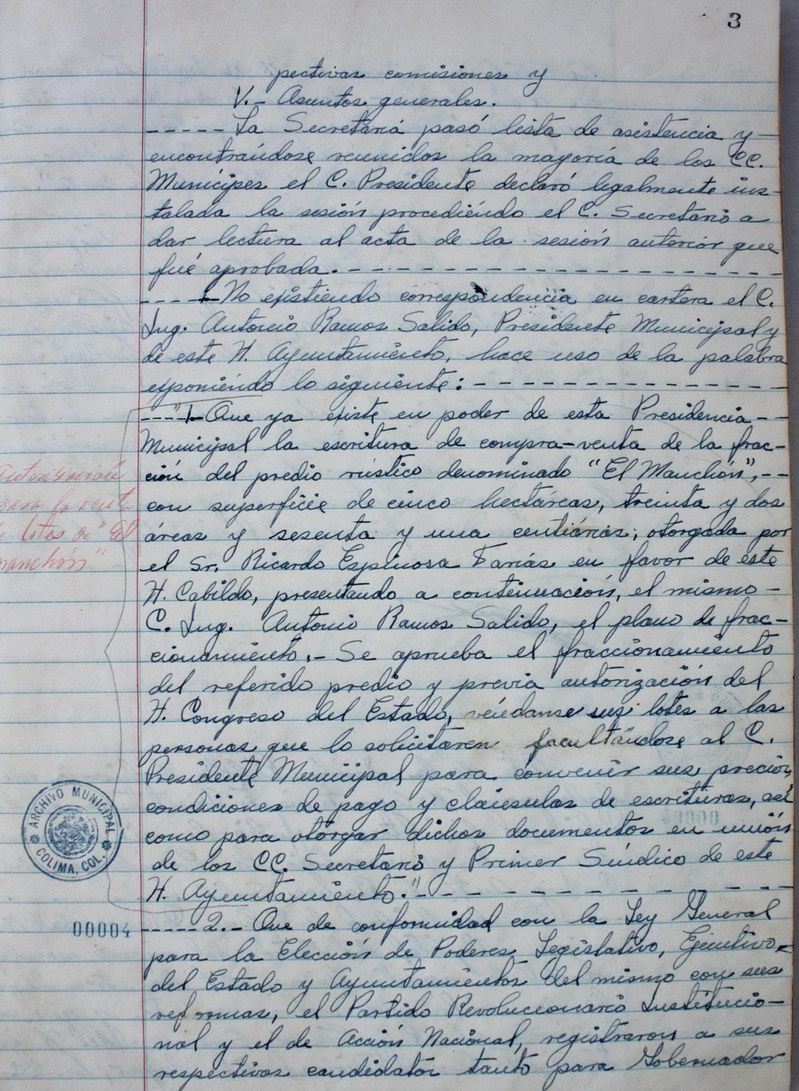 3
pectivas comisiones y
V.- Asuntos generales.
----- La Secretaría pasó lista de asistencia y-
encontrándose reunidos la mayoría de los CC.
Munícipes el C. Presidente declaró legalmente ins-
talada la sesión procediendo el C. Secretario a
dar lectura al acta de la sesión anterior que
fué aprobada.--------------------
----- No existiendo correspondencia en cartera el C.
Ing. Antonio Ramos Salido, Presidente Municipal y
de este H. Ayuntamiento, hace uso de la palabra
exponiendo lo siguiente:--------------
---"1.- Que ya existe en poder de esta Presidencia--
Municipal la escritura de compra-venta de la frac-
ción del predio rústico denominado "El Manchón",--
con superficie de cinco hectáreas, treinta y dos
áreas y sesenta y una centiáreas, otorgada por
el Sr. Ricardo Espinosa Farías en favor de este
H. Cabildo, presentando a continuación, el mismo-
C. Ing. Antonio Ramos Salido, el plano de frac-
cionamiento.- Se aprueba el fraccionamiento
del referido predio y previa autorización del
H. Congreso del Estado, véndanse sus lotes a las
personas que lo solicitaren facultándose al C.
Presidente Municipal para convenir sus precios,
condiciones de pago y cláusulas de escrituras, así
como para otorgar dichos documentos en unión
de los CC. Secretario y Primer Síndico de este
H. Ayuntamiento."-----------------
----- 2.- Que de conformidad con la Ley General
para la Elección de Poderes Legislativo, Ejecutivo
del Estado y Ayuntamientos del mismo con sus
reformas, el Partido Revolucionario Institucio-
nal y el de Acción Nacional, registraron a sus
respectivos candidatos tanto para Gobernador
lotes de "El
Manchón"
ARCHIVO MUNICIPAL
COLIMA, COL.
00004